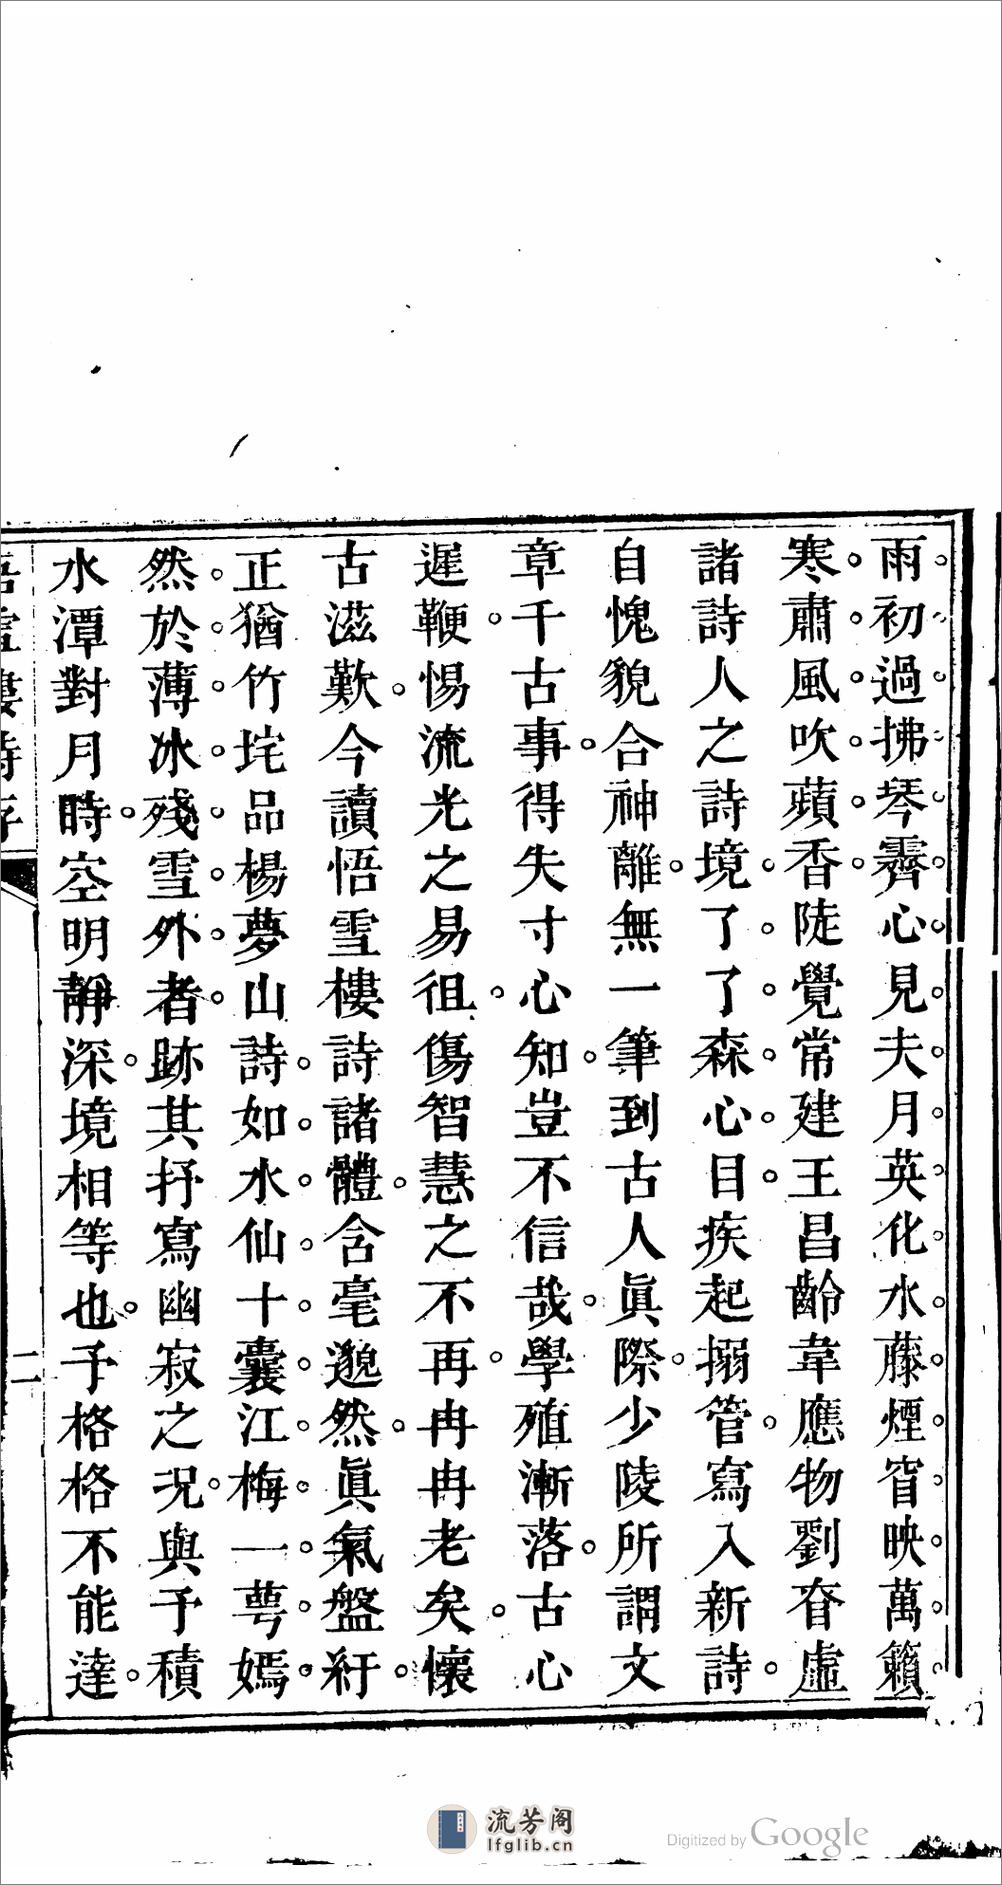 雨初過拂琴霽心見夫月英化水藤煙窅映萬籟
寒肅風吹蘋香陡覺常建王昌齡韋應物劉眘虛
諸詩人之詩境了了森心目疾起搦管寫入新詩
自愧貌合神離無一筆到古人眞際少陵所謂文
章千古事得失寸心知豈不信哉學殖漸落古心
遲鞭惕流光之易徂傷智慧之不再冉冉老矣懷
古滋歎今讀悟雪樓詩諸體含毫邈然眞氣盤紆
正猶竹垞品楊夢山詩如水仙十囊江梅一萼嫣
然於薄冰殘雪外者跡其抒寫幽寂之況與予積
水潭對月時空明靜深境相等也予格格不能達
悟雪樓詩存
二
流芳阁
lfglib.cn
Digitized by Google